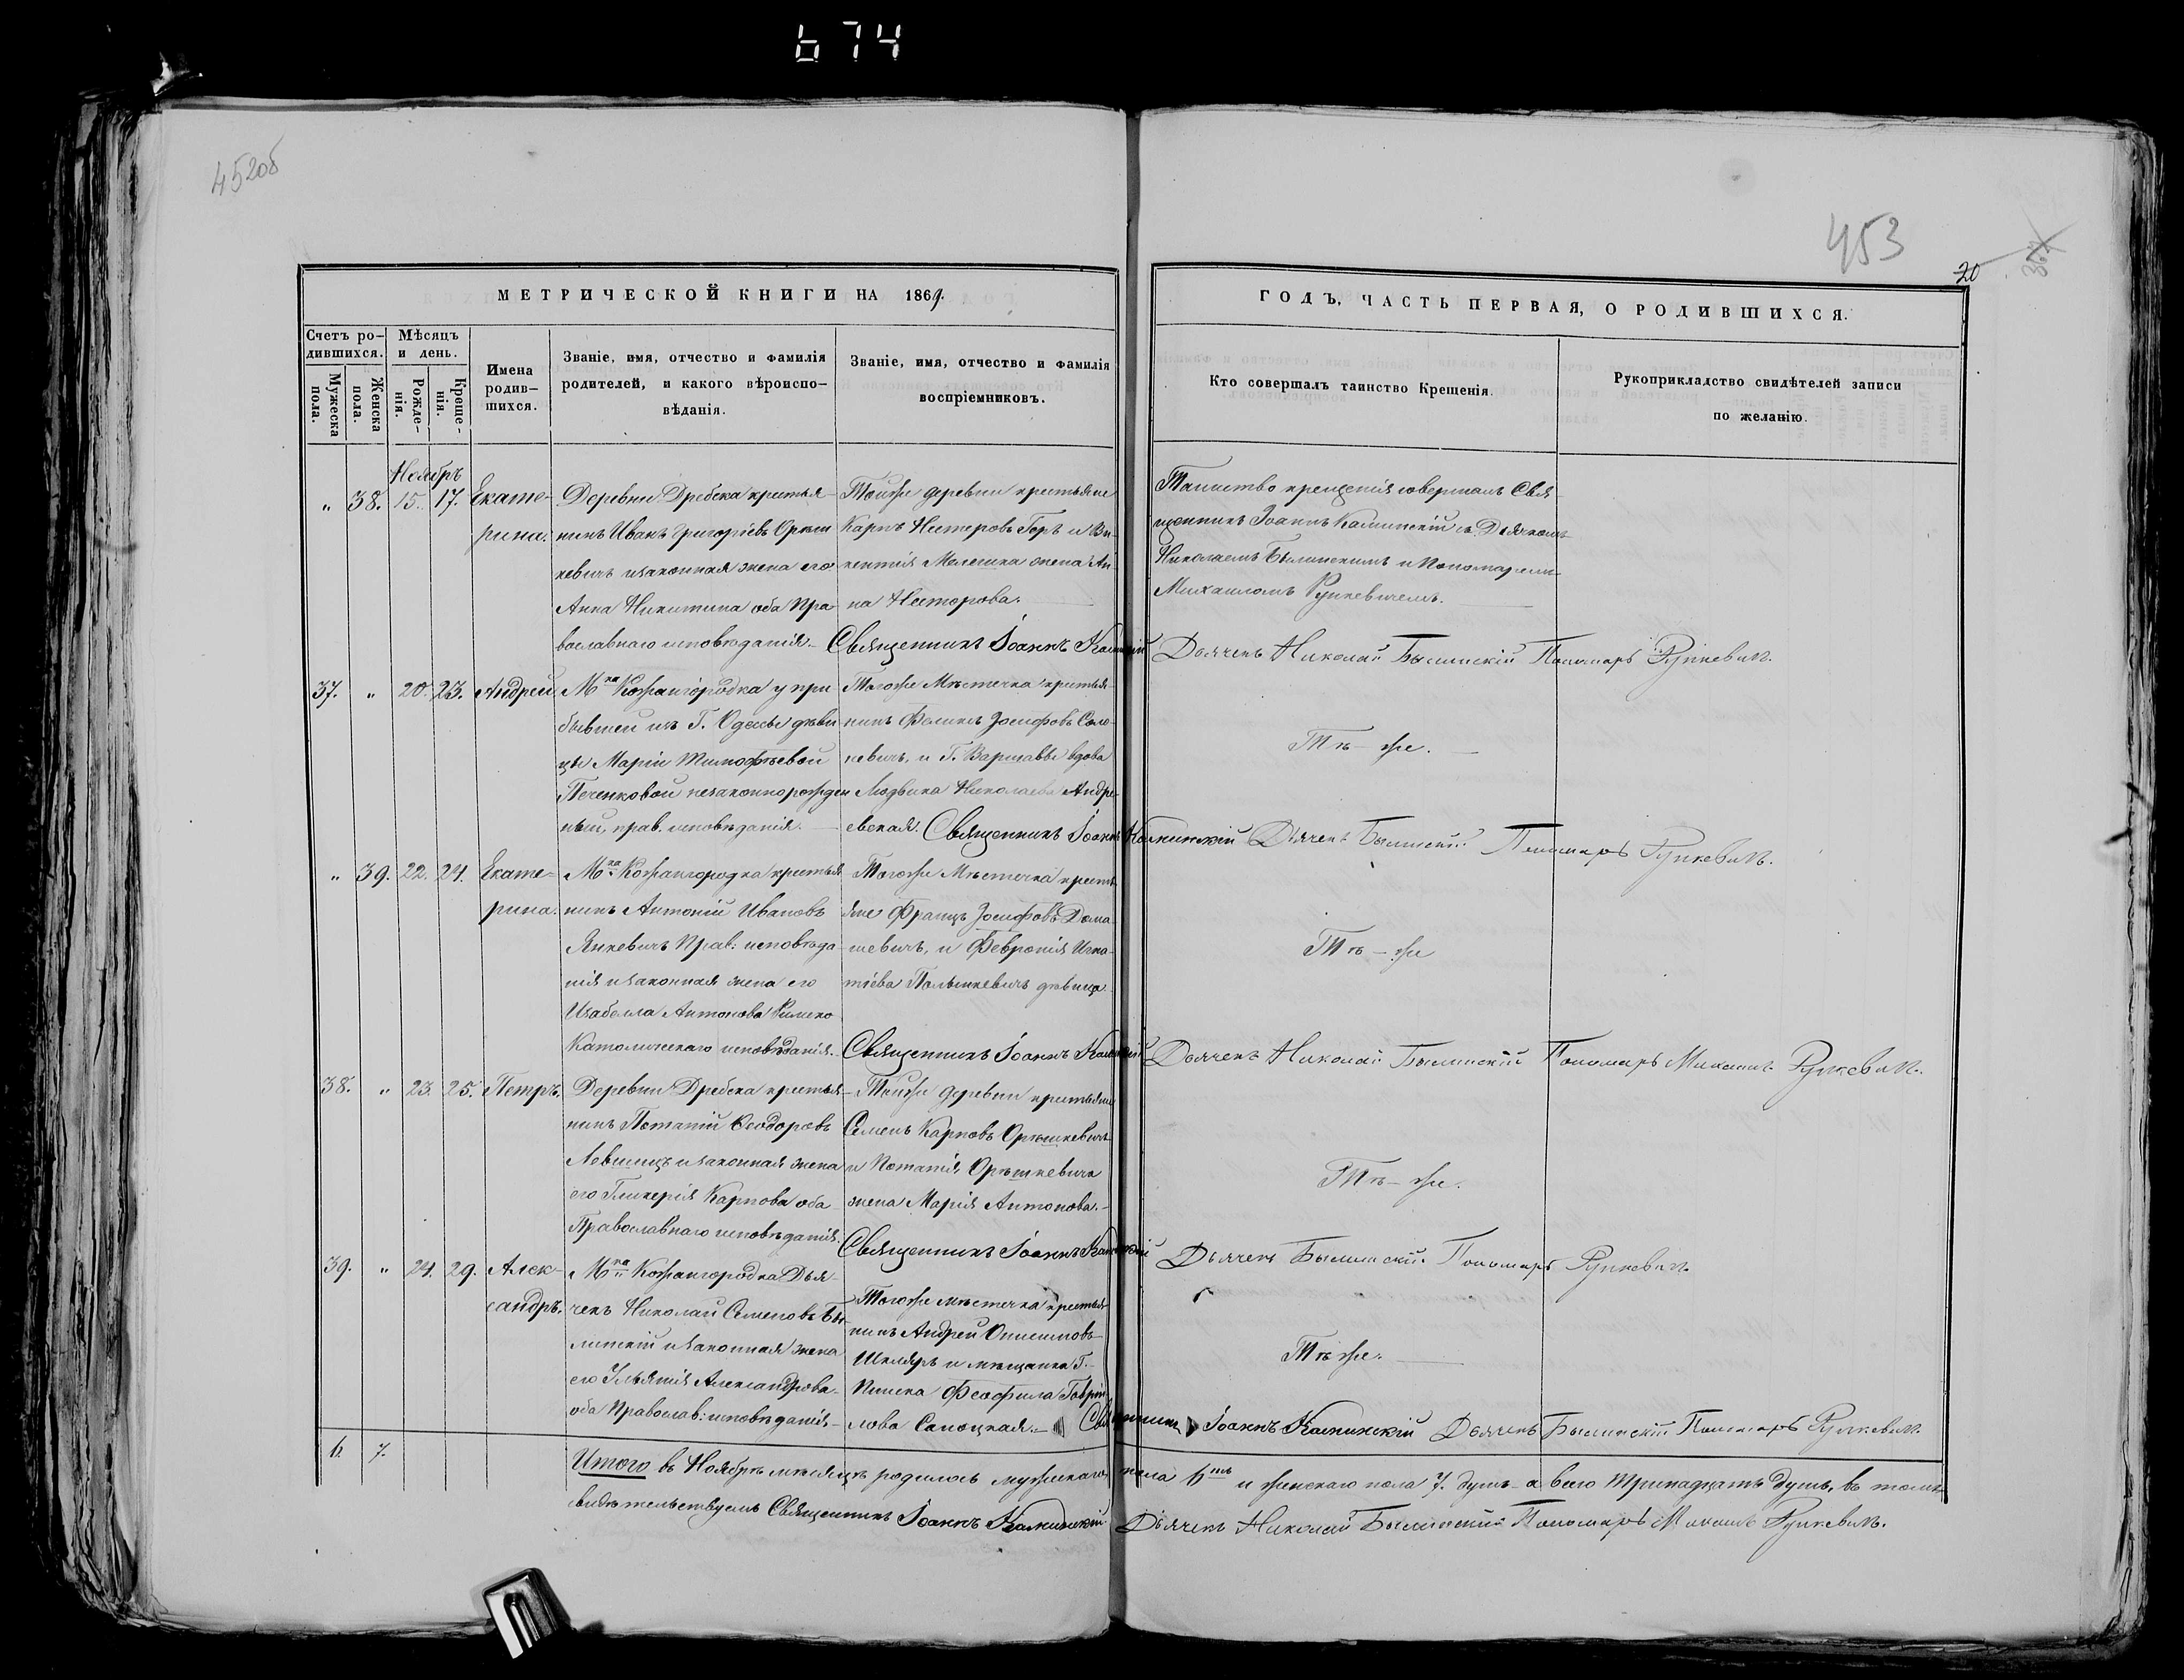 674
452об
453
20
МЕТРИЧЕСКОЙ КНИГИ НА 1869.
ГОДЪ, ЧАСТЬ ПЕРВАЯ, О РОДИВШИХСЯ.
Счетъ ро-
дившихся.
Мужеска
пола.
Женска
пола.
Мѣсяцъ
и день.
Рожде-
нія.
Креще-
нія.
Имена
родив-
шихся.
Званіе, имя, отчество и фамилія
родителей, и какого вѣроиспо-
вѣданія.
Званіе, имя, отчество и фамилія
воспріемниковъ.
Кто совершалъ таинство Крещенія.
Рукоприкладство свидѣтелей записи
по желанію.
Ноябрь
„ 38. 15. 17. Екате-
рина.
Деревни Дребска крестья-
нинъ Иванъ Григоріевъ Ореш
кевичъ и законная жена его
Анна Никитина оба Пра-
вославнаго исповѣданія.
Тойже деревни крестьяне
Карпъ Нестеровъ Геръ и Ви-
кентія Мелешка жена Ан-
на Нестерова.
Таинство крещенія совершалъ Свя-
щенникъ Іоаннъ Калинскій съ Дьячкомъ
Николаемъ Былинскимъ и Пономаремъ
Михаиломъ Рункевичемъ.
Священникъ Іоаннъ Калинскій Дьячекъ Николай Былинскій Пономарь Рункевичъ.
37. „ 20. 23. Андрей
Мка Кожангородка у при
бывшей изъ Г. Одессы дѣви
цы Маріи Тимофѣевой
Печенковой незаконнорожден
ный, прав. исповѣданія.
Тогоже Мѣстечка крестья-
нинъ Феликсъ Іосифовъ Соло-
невичъ, и Г. Варшавы вдова
Людвика Николаева Андре-
евская.
Тѣ-же.
Священникъ Іоаннъ Калинскій Дьячекъ Былинскій Пономарь Рункевичъ.
„ 39. 22. 24. Екате-
рина.
Мка Кожангородка крестья
нинъ Антоній Ивановъ
Янкевичъ Прав: исповѣда-
нія и законная жена его
Изабелла Антонова Римско
Католическаго исповѣданія.
Тогоже Мѣстечка кресть
яне Францъ Іосифовъ Дома-
шевичъ, и Февронія Игна-
тіева Полынкевичъ дѣвица
Тѣ-же
Священникъ Іоаннъ Калинскій Дьячекъ Николай Былинскій Пономарь Михаилъ Рункевичъ.
38. „ 23. 25. Петръ.
Деревни Дребска крестья-
нинъ Потапій Ѳеодоровъ
Левшицъ и законная жена
его Гликерія Карпова оба
Православнаго исповѣданія.
Тойже деревни крестьяне
Семенъ Карповъ Орѣшкевичъ
и Потапія Орѣшкевича
жена Марія Антонова.
Тѣ-же.
Священникъ Іоаннъ Калинскій Дьячекъ Былинскій Пономарь Рункевичъ
39. „ 24. 29. Алек-
сандръ.
Мка Кожангородка Дья-
чекъ Николай Семеновъ Бы-
линскій и законная жена
его Ульянія Александрова
оба Православ: исповѣданія
Тогоже мѣстечка крестья
нинъ Андрей Онисимовъ
Шкляръ и мѣщанка Г.
Пинска Феофила Гаврі-
лова Сапоцкая.
Тѣже.
Священникъ Іоаннъ Калинскій Дьячекъ Былинскій Пономарь Рункевичъ.
6. 7.
Итого въ Ноябрѣ мѣсяцѣ родилось мужескаго пола 6ть и женскаго пола 7. душъ а всего тринадцать душъ, въ томъ
свидѣтельствуемъ Священникъ Іоаннъ Калинскій Дьячекъ Николай Былинскій Пономарь Михаилъ Рункевичъ.